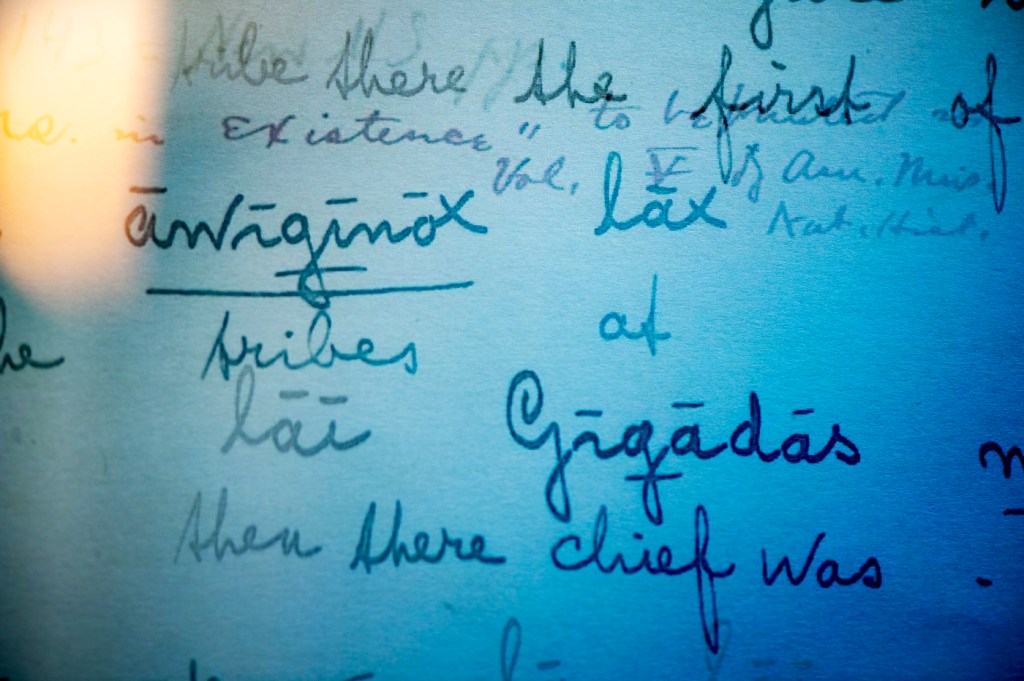 tribe there the first of
in existence" to
Vol. V of Am. Mus.
Nat. Hist.
āwīg̱īnōx lāx
he tribes at
lāī Gīg̱ādās
then there chief was .